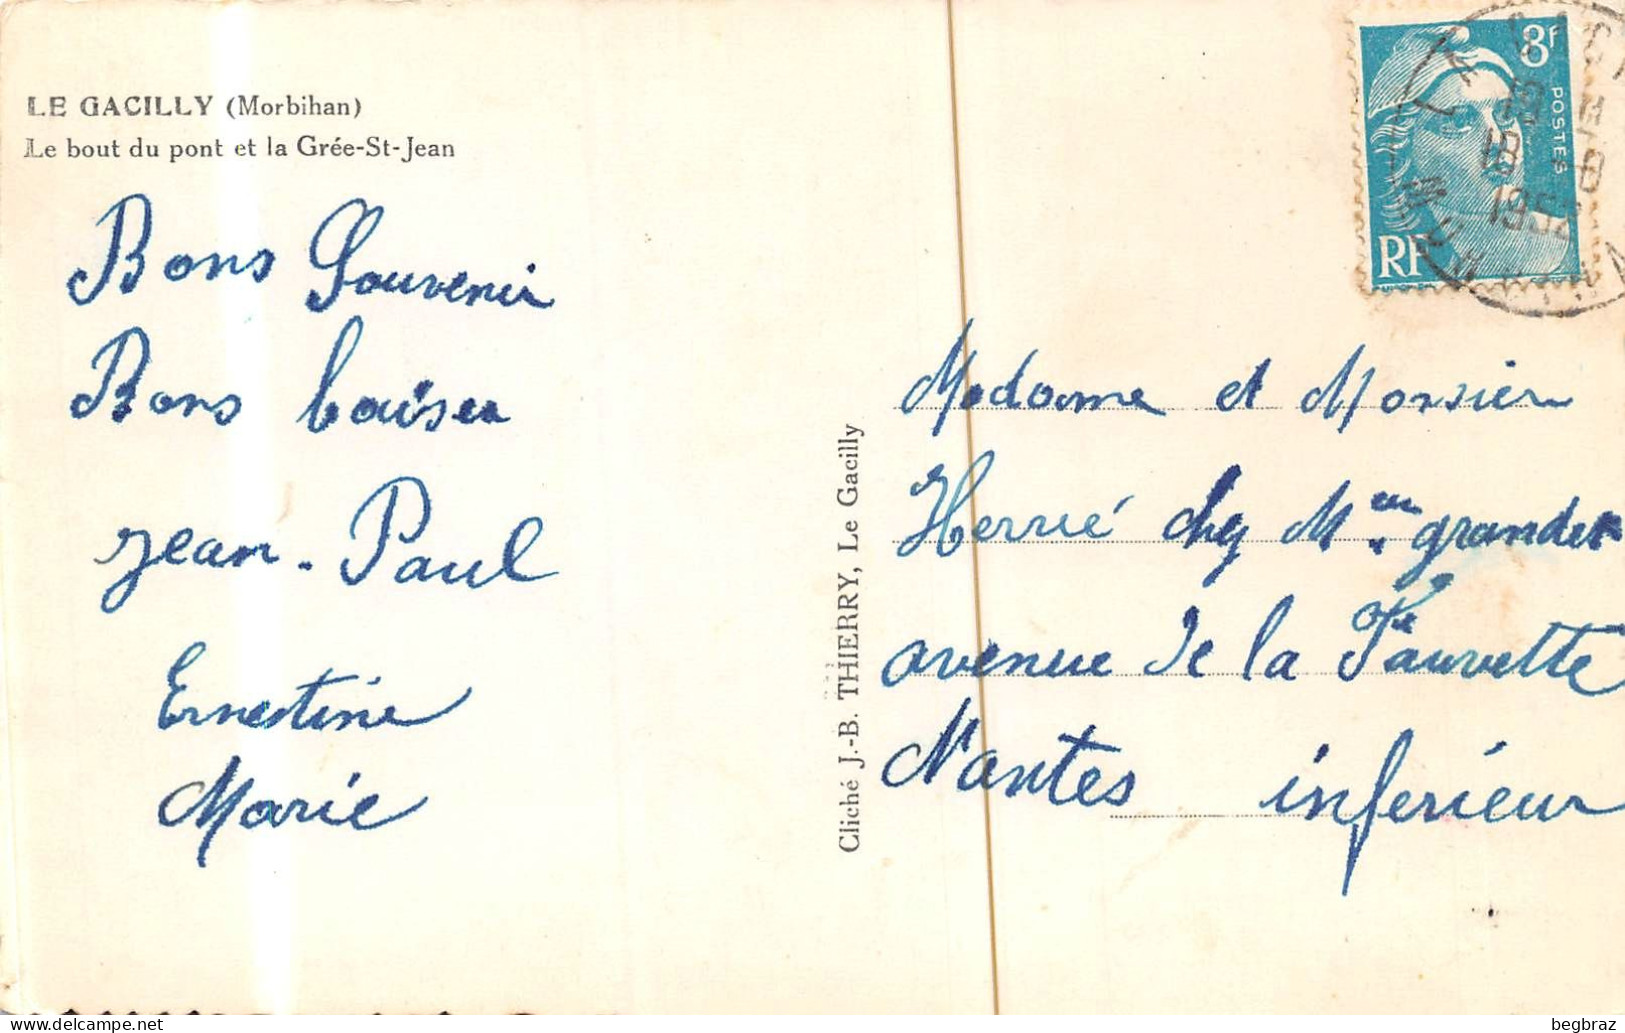 LE GACILLY (Morbihan)
Le bout du pont et la Grée-St-Jean
Bons Souvenir
Bons baiser
Jean-Paul
Ernestine
Marie
Cliché J.-B. THIERRY, Le Gacilly
8f
POSTES
RF
18
1952
Madame et Monsier
Hervé chez M
avenue de la Fauvette
Nantes inferieur
begbraz